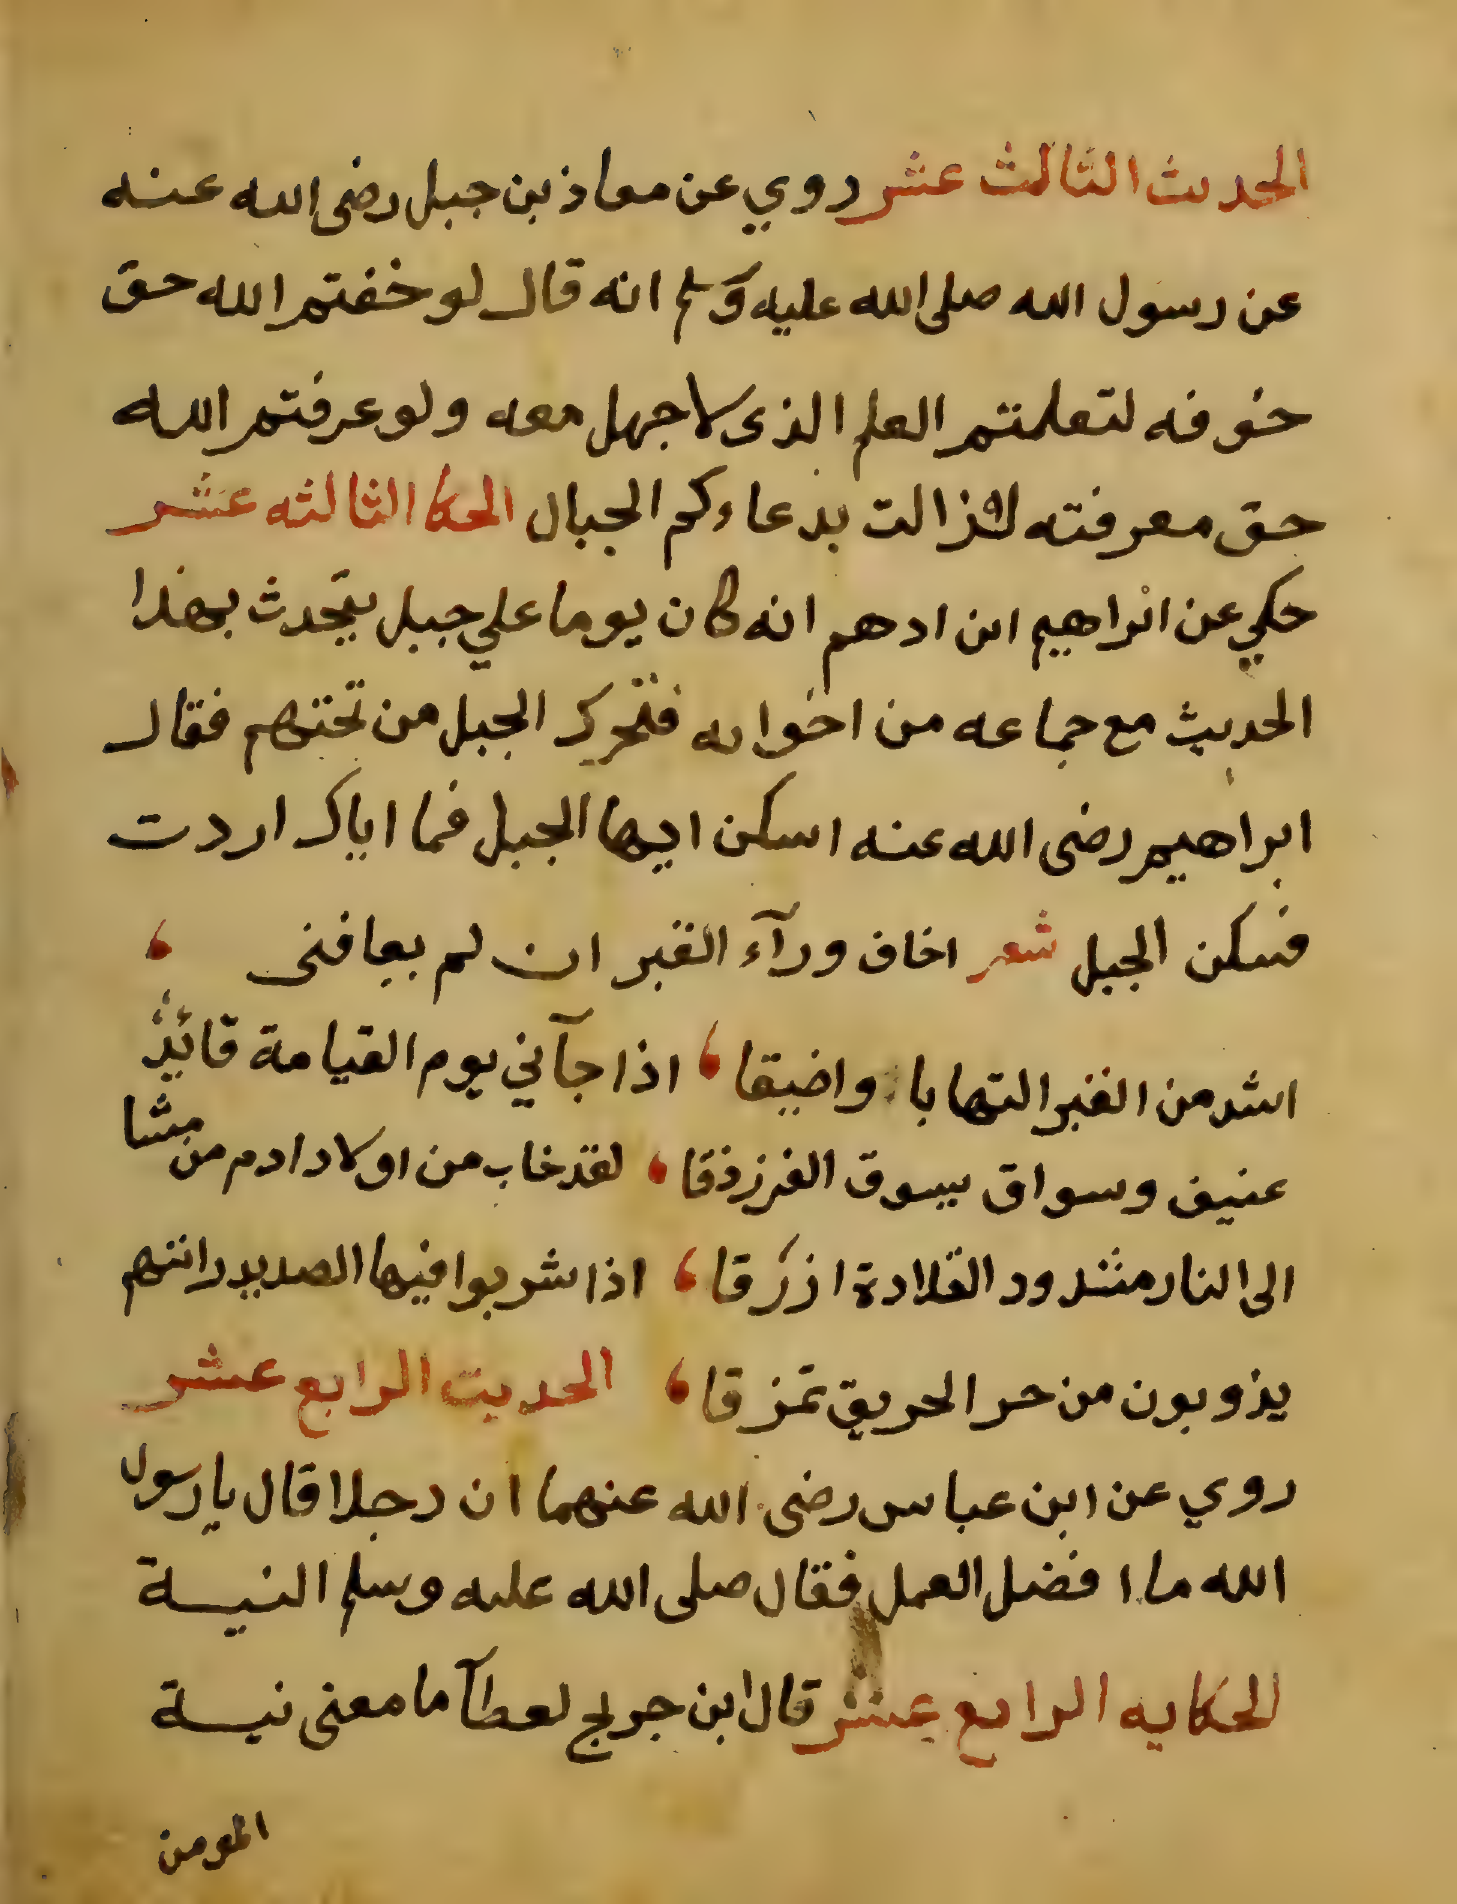 الحديث الثالث عشر روي عن معاذ بن جبل رضى الله عنه
عن رسول الله صلى الله عليه وسلم انه قال لو خفتم الله حق
خوفه لتعلمتم العلم الذى لا جهل معه ولو عرفتم الله
حق معرفته لزالت بدعاوكم الجبال الحكا الثالثه عشر
حكي عن ابراهيم ابن ادهم انه كان يوما علي جبل يتحدث بهذا
الحديث مع جماعه من اخوانه فتحرك الجبل من تحتهم فقال
ابراهيم رضى الله عنه اسكن ايها الجبل فما اياك اردت
فسكن الجبل شعر اخاف ورآء القبر ان لم يعافنى
اشد من القبر التهابا واضيقا اذا جآني يوم القيامة قائد
عنيف وسواق يسوق الفرزدقا لقد خاب من اولاد ادم من مشا
الى النار مشدود القلادة ازرقا اذا شربوا فيها الصديد رايتهم
يذوبون من حر الحريق تمزقا الحديث الرابع عشر
روي عن ابن عباس رضى الله عنهما ان رجلا قال يا رسول
الله ما افضل العمل فقال صلى الله عليه وسلم النية
الحكايه الرابع عشر قال ابن جريج لعطآ ما معنى نية
المومن